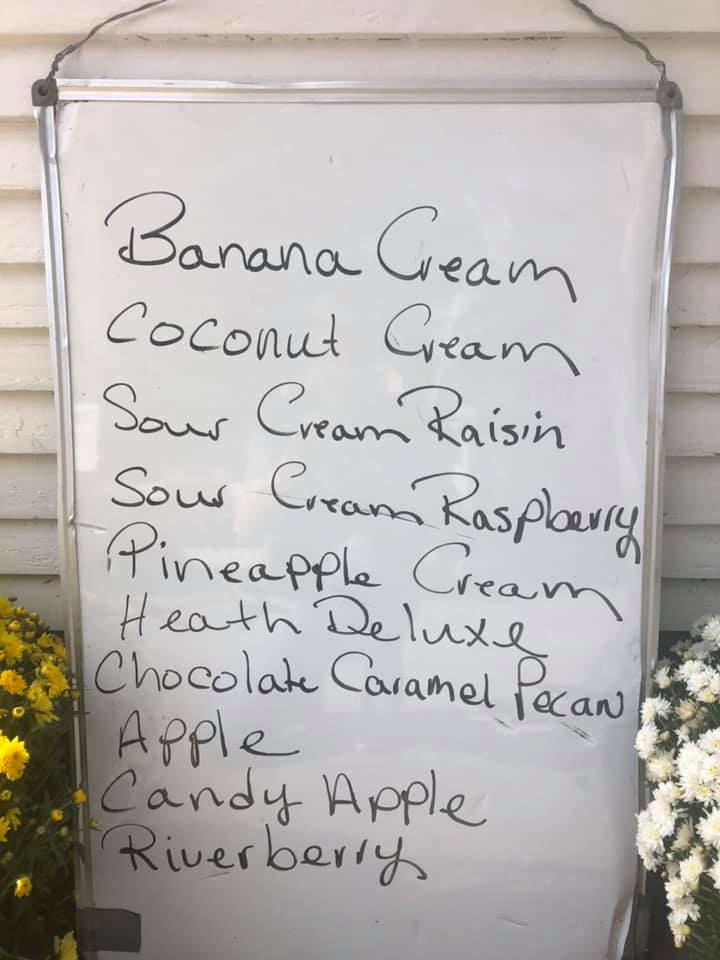 Banana Cream
Coconut Cream
Sour Cream Raisin
Sour Cream Raspberry
Pineapple Cream
Heath Deluxe
Chocolate Caramel Pecan
Apple
Candy Apple
Riverberry